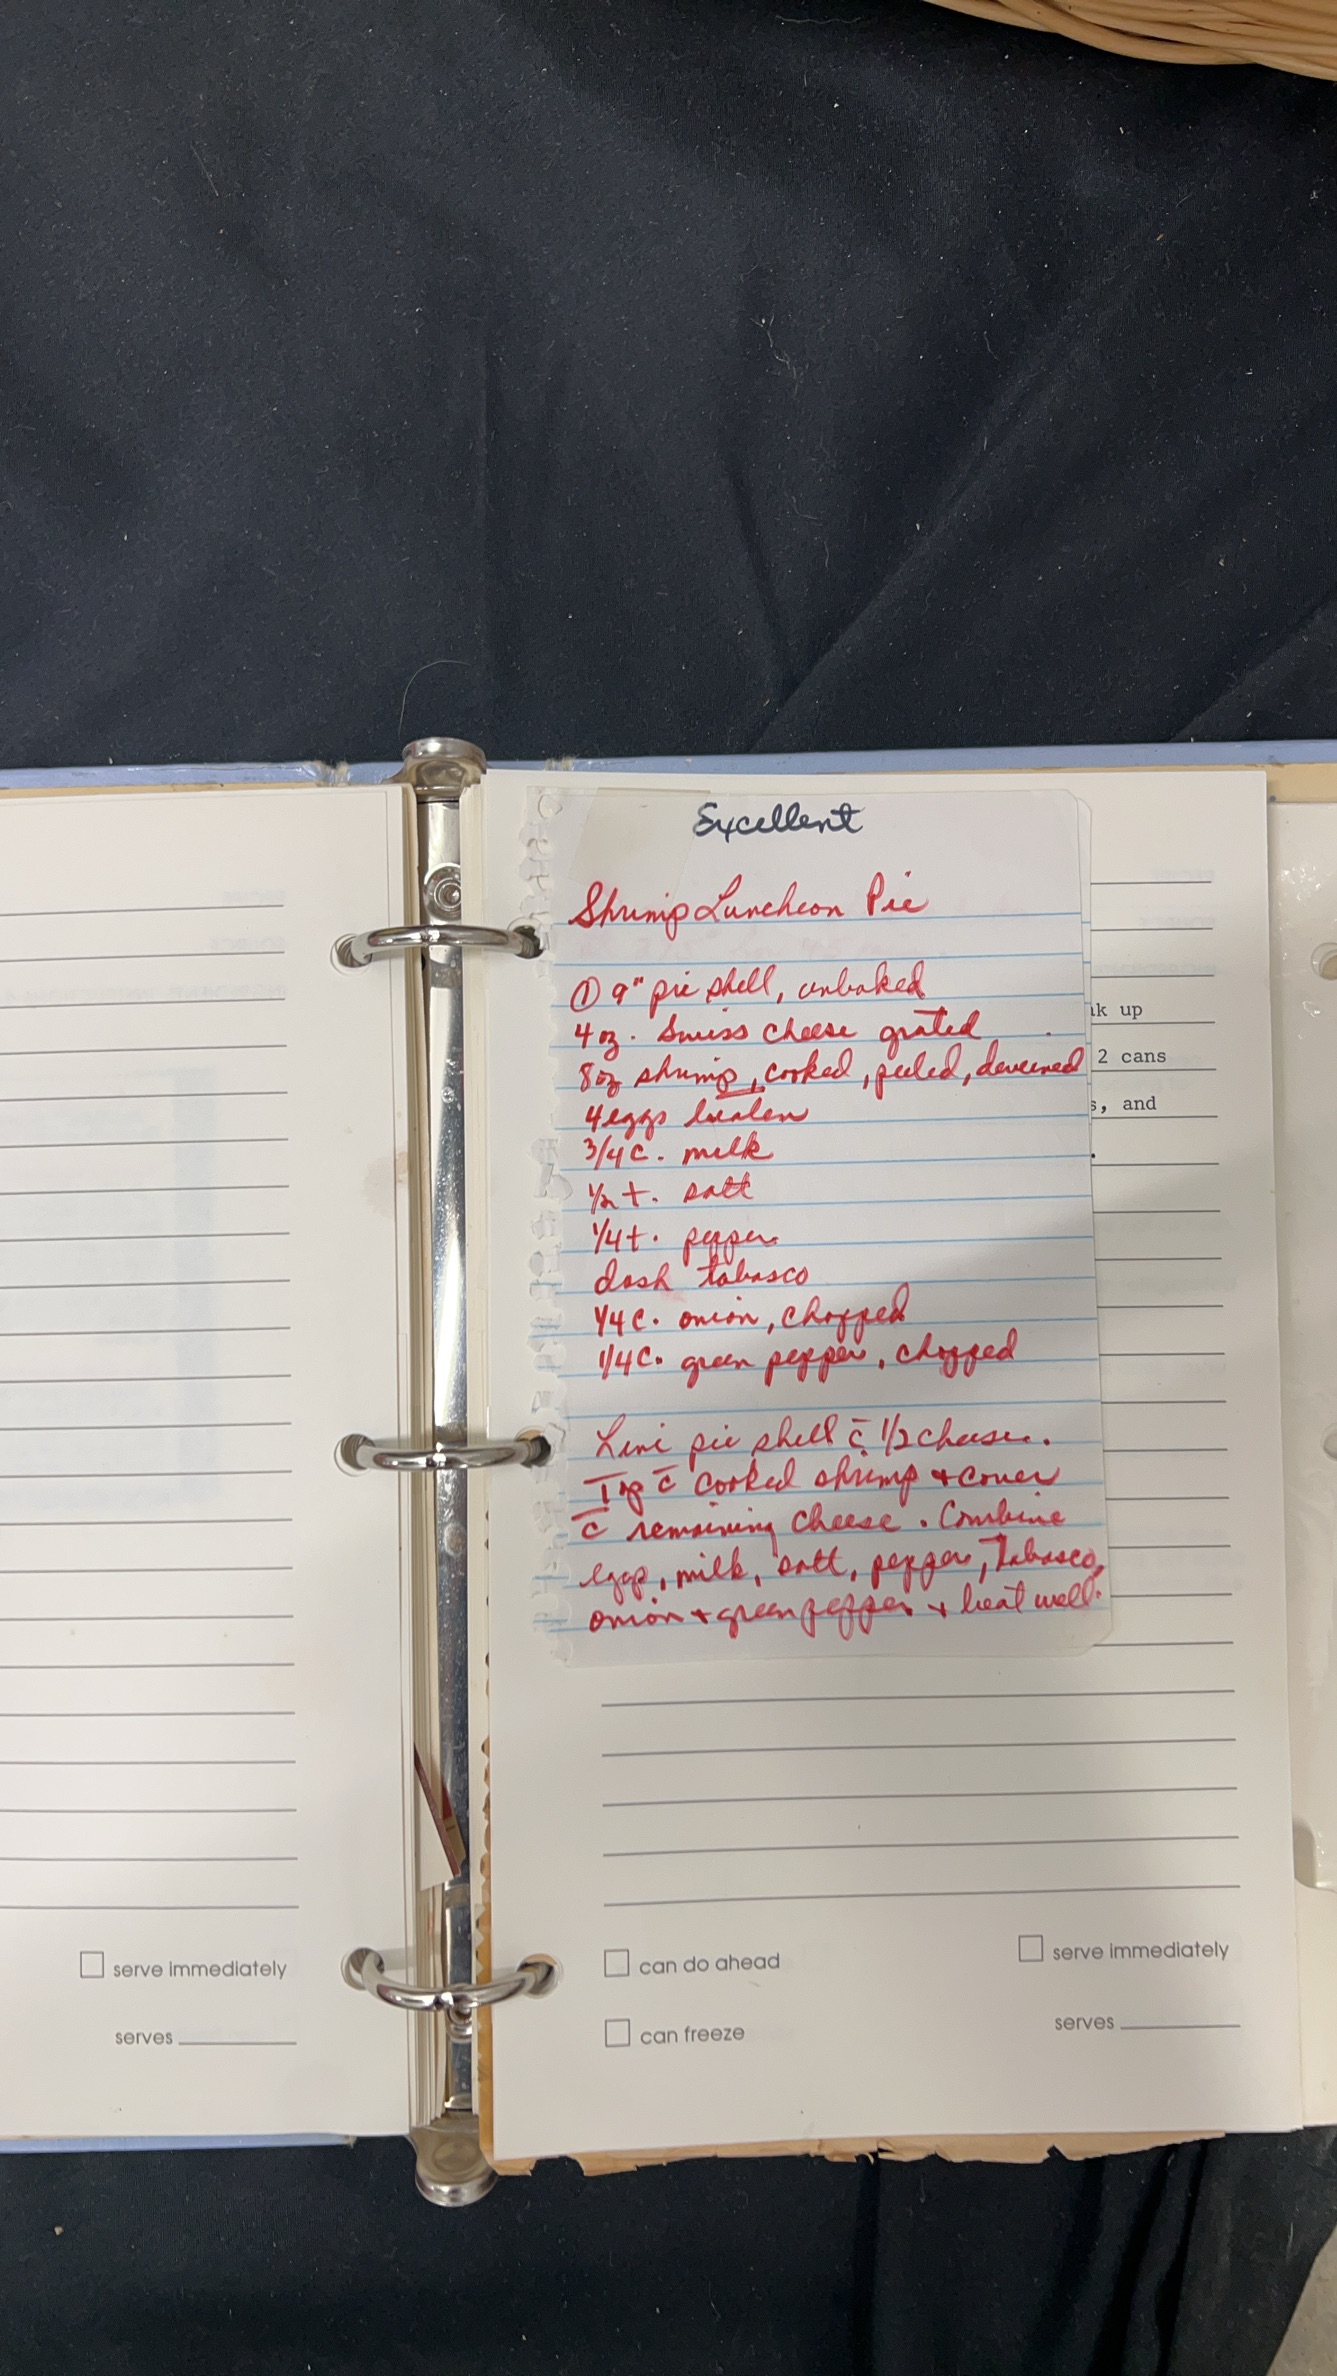 Excellent
Shrimp Luncheon Pie
① 9" pie shell, unbaked
4 oz. Swiss cheese grated
8 oz shrimp, cooked, peeled, deveined
4 eggs beaten
3/4 c. milk
1/2 t. salt
1/4 t. pepper
dash tabasco
1/4 c. onion, chopped
1/4 c. green pepper, chopped
Line pie shell c̄ 1/2 cheese.
Top c̄ cooked shrimp + cover
c̄ remaining cheese. Combine
eggs, milk, salt, pepper, Tabasco,
onion + green pepper + beat well.
k up
2 cans
s, and
.
serve immediately
serves
can do ahead
serve immediately
can freeze
serves